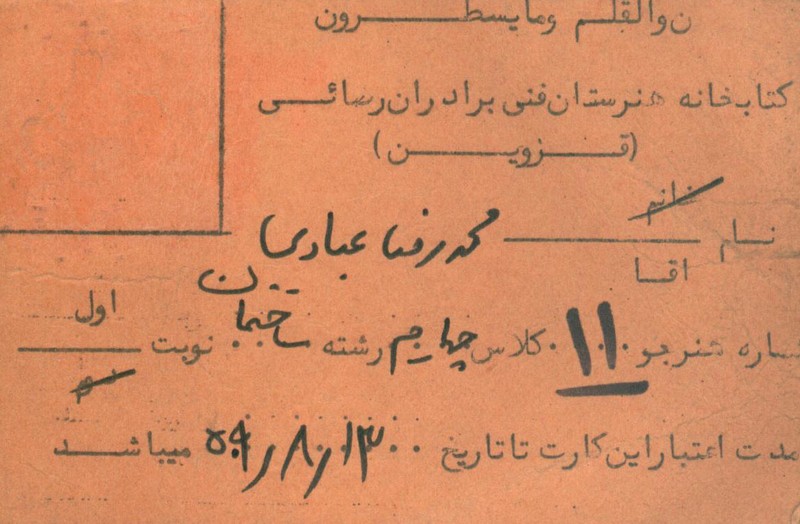 ن والقلم ومایسطرون
کتابخانه هنرستان فنی برادران رسائی
(قزوین)
خانم
نام آقا محمدرضا عبادی
شماره هنرجو ۱۱ کلاس چهارم رشته ساختمان نوبت اول
دوم
مدت اعتبار این کارت تا تاریخ ۵۹/۸/۱۳۰۰ میباشد